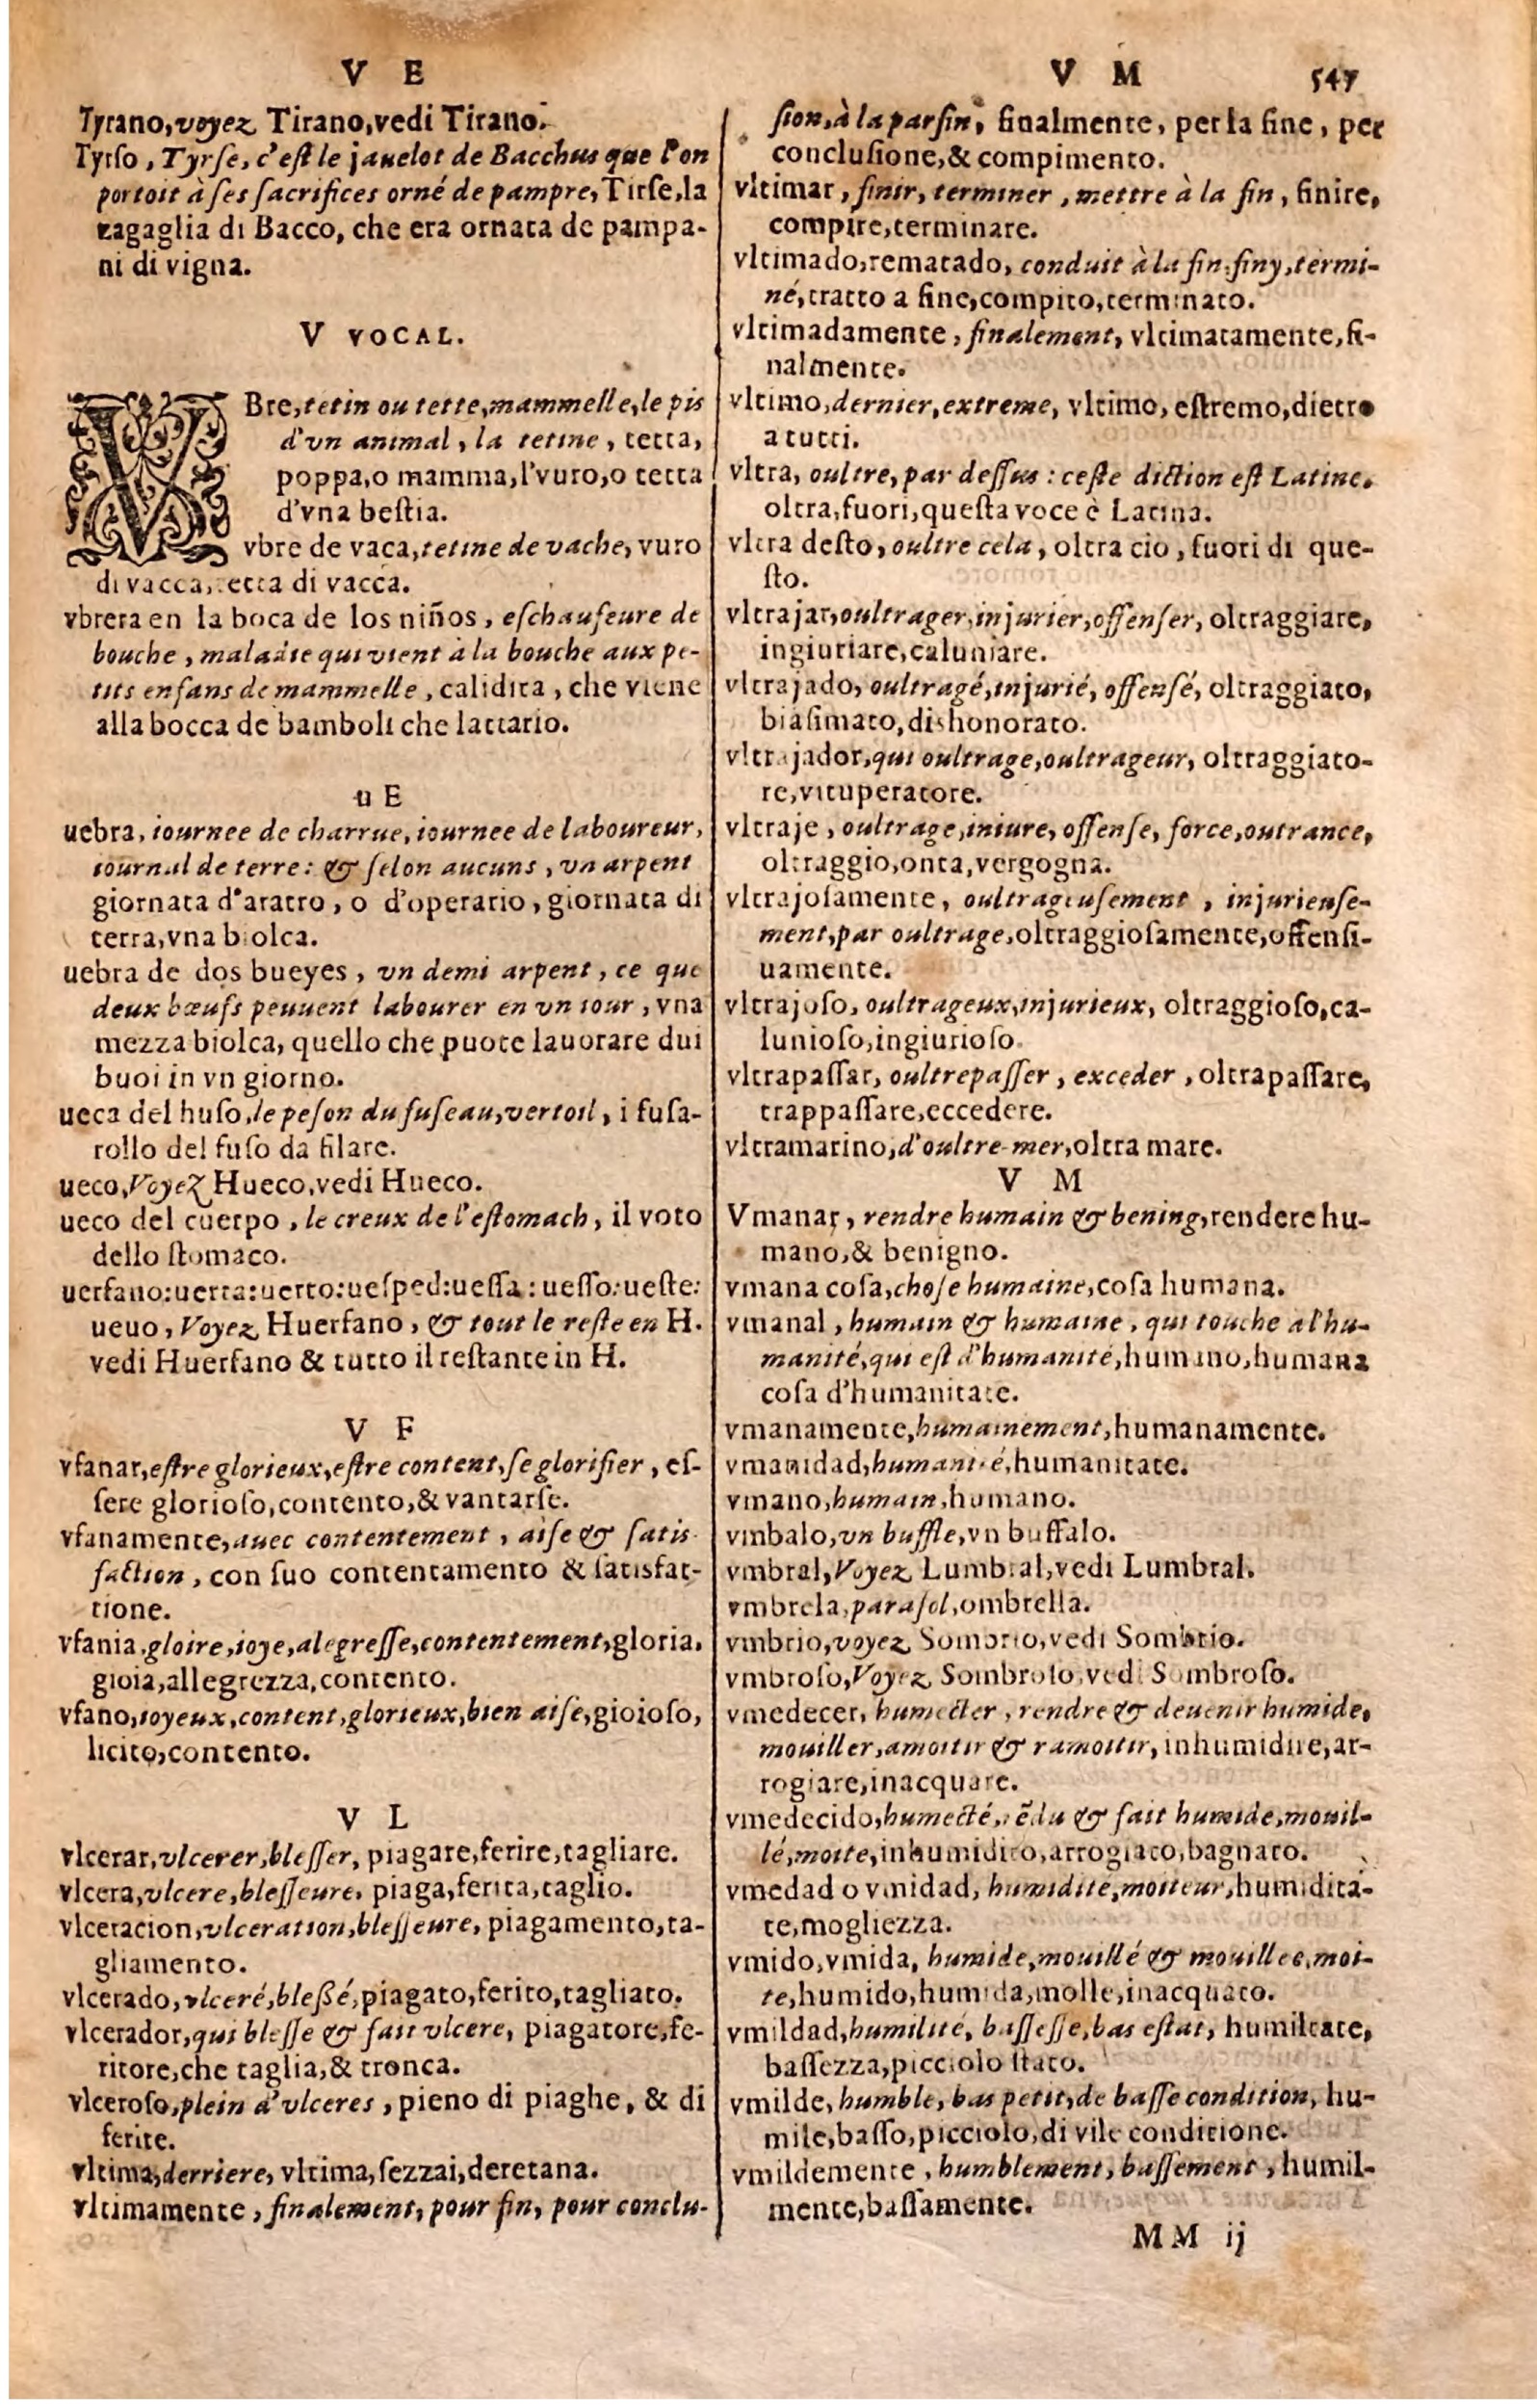 V E
Tyrano, voyez Tirano, vedi Tirano.
Tyrſo, Tyrſe, c'eſt le jauelot de Bacchus que l'on
portoit à ſes ſacrifices orné de pampre, Tirſe, la
zagaglia di Bacco, che era ornata de pampa-
ni di vigna.
V VOCAL.
VBre, tetin ou tette, mammelle, le pis
d'vn animal, la tetine, tetta,
poppa, o mamma, l'vuro, o tetta
d'vna beſtia.
vbre de vaca, tetine de vache, vuro
di vacca, tetta di vacca.
vbrera en la boca de los niños, eſchaufeure de
bouche, maladie qui vient à la bouche aux pe-
tits enfans de mammelle, calidita, che viene
alla bocca de bamboli che lattario.
u E
uebra, iournee de charrue, iournee de laboureur,
iournal de terre: & ſelon aucuns, vn arpent
giornata d'aratro, o d'operario, giornata di
terra, vna biolca.
uebra de dos bueyes, vn demi arpent, ce que
deux bœufs peuuent labourer en vn iour, vna
mezza biolca, quello che puote lauorare dui
buoi in vn giorno.
ueca del huſo, le peſon du fuſeau, vertoil, i fuſa-
rollo del fuſo da filare.
ueco, Voyez Hueco, vedi Hueco.
ueco del cuerpo, le creux de l'eſtomach, il voto
dello ſtomaco.
uerfano: uerta: uerto: ueſped: ueſſa: ueſſo: ueſte:
ueuo, Voyez Huerfano, & tout le reſte en H.
vedi Huerfano & tutto il reſtante in H.
V F
vfanar, eſtre glorieux, eſtre content, ſe glorifier, eſ-
ſere glorioſo, contento, & vantarſe.
vfanamente, auec contentement, aiſe & ſatis-
faction, con ſuo contentamento & ſatisfat-
tione.
vfania, gloire, ioye, alegreſſe, contentement, gloria,
gioia, allegrezza, contento.
vfano, ioyeux, content, glorieux, bien aiſe, gioioſo,
licito, contento.
V L
vlcerar, vlcerer, bleſſer, piagare, ferire, tagliare.
vlcera, vlcere, bleſſeure, piaga, ferita, taglio.
vlceracion, vlceration, bleſſeure, piagamento, ta-
gliamento.
vlcerado, vlceré, bleßé, piagato, ferito, tagliato.
vlcerador, qui bleſſe & fait vlcere, piagatore, fe-
ritore, che taglia, & tronca.
vlceroſo, plein d'vlceres, pieno di piaghe, & di
ferite.
vltima, derriere, vltima, ſezzai, deretana.
vltimamente, finalement, pour fin, pour conclu-
V M 547
ſion, à la parfin, finalmente, per la fine, per
concluſione, & compimento.
vltimar, finir, terminer, mettre à la fin, finire,
compire, terminare.
vltimado, rematado, conduit à la fin, finy, termi-
né, tratto a fine, compito, terminato.
vltimadamente, finalement, vltimatamente, fi-
nalmente.
vltimo, dernier, extreme, vltimo, eſtremo, dietro
a tutti.
vltra, oultre, par deſſus: ceſte diction eſt Latine.
oltra, fuori, queſta voce è Latina.
vltra deſto, oultre cela, oltra cio, fuori di que-
ſto.
vltrajar, oultrager, injurier, offenſer, oltraggiare,
ingiuriare, caluniare.
vltrajado, oultragé, injurié, offenſé, oltraggiato,
biaſimato, dishonorato.
vltrajador, qui oultrage, oultrageur, oltraggiato-
re, vituperatore.
vltraje, oultrage, iniure, offenſe, force, outrance,
oltraggio, onta, vergogna.
vltrajoſamente, oultrageuſement, injurieuſe-
ment, par oultrage, oltraggioſamente, offenſi-
uamente.
vltrajoſo, oultrageux, injurieux, oltraggioſo, ca-
lunioſo, ingiurioſo.
vltrapaſſar, oultrepaſſer, exceder, oltrapaſſare,
trappaſſare, eccedere.
vltramarino, d'oultre-mer, oltra mare.
V M
Vmanar, rendre humain & bening, rendere hu-
mano, & benigno.
vmana coſa, choſe humaine, coſa humana.
vmanal, humain & humaine, qui touche a l'hu-
manité, qui eſt d'humanité, humano, humana
coſa d'humanitate.
vmanamente, humainement, humanamente.
vmanidad, humanité, humanitate.
vmano, humain, humano.
vmbalo, vn buffle, vn buffalo.
vmbral, Voyez Lumbral, vedi Lumbral.
vmbrela, paraſol, ombrella.
vmbrio, voyez Sombrio, vedi Sombrio.
vmbroſo, Voyez Sombroſo, vedi Sombroſo.
vmedecer, humecter, rendre & deuenir humide,
mouiller, amoitir & ramoitir, inhumidire, ar-
rogiare, inacquare.
vmedecido, humecté, rẽdu & fait humide, mouil-
lé, moite, inhumidito, arrogiato, bagnato.
vmedad o vmidad, humidité, moiteur, humidita-
te, mogliezza.
vmido, vmida, humide, mouillé & mouillee, moi-
te, humido, humida, molle, inacquato.
vmildad, humilité, baſſeſſe, bas eſtat, humiltate,
baſſezza, picciolo ſtato.
vmilde, humble, bas petit, de baſſe condition, hu-
mile, baſſo, picciolo, di vile conditione.
vmildemente, humblement, baſſement, humil-
mente, baſſamente.
MM ij